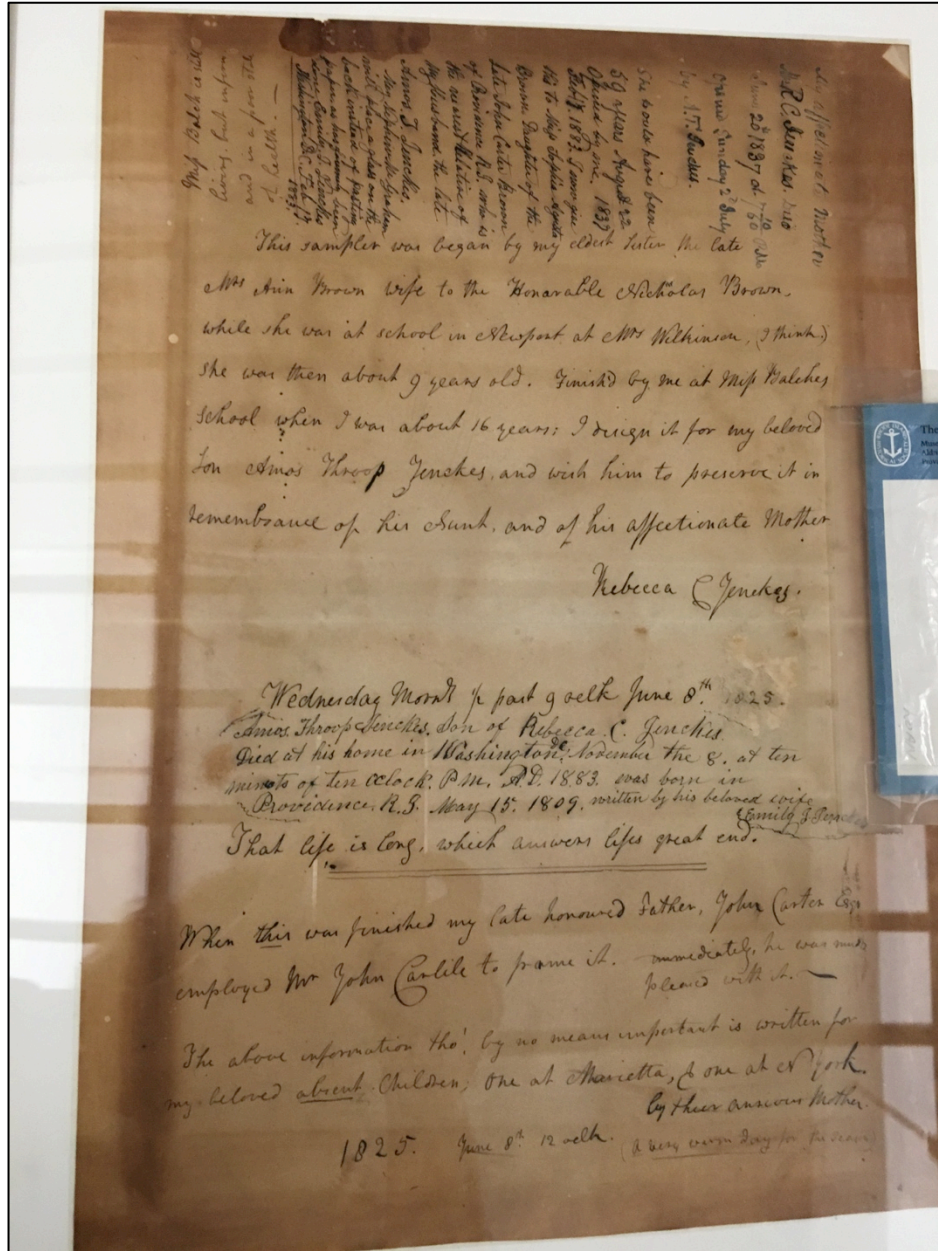 My affectionate Mother
Mrs R. C. Jenckes. died
June 20th 1837 of
opened Sunday 2d July
by A. T. Jenckes.
She would have been
59 years August 22
1837
Opened by me,
Feby 1883. I now give
this to Miss Sophia Augusta
Brown Daughter of the
late John Carter Brown
of Providence R.I. who is
the nearest relative of
My husband the late
Amos T. Jenckes.
My Nephew Mr Graham
will place a glass on the
back instead of pasting
paper as has always been
done Emily J. Jenckes
Washington D.C. Feb
1883.
Miss Balch is still
living, but infirm
and in a poor state
of health. —
This sampler was began by my eldest Sister the late
Mrs Ann Brown wife to the Honarable Nicholas Brown,
while she was at school in Newport at Mrs Wilkinson, (I think.)
she was then about 9 years old. Finish'd by me at Miss Balches
School when I was about 16 years: I disign it for my beloved
Son Amos Throop Jenckes, and wish him to preserve it in
remembrance of his Aunt, and of his affectionate Mother
Rebecca C Jenckes.
Wednesday Morng ½ past 9 oclk June 8th 1825.
Amos Throop Jenckes, Son of Rebecca. C. Jenckes.
Died at his home in Washington DC November the 8. at ten
minots of ten oclock, P.m, A.D. 1883 was born in
Providence. R.I. May 15. 1809. written by his beloved wife
Emily J Jenckes
That life is long, which answers lifes great end.
When this was finished my late honoured Father, John Carter Esqr
employed Mr John Carlile to frame it. immediately, he was much
pleased with it. —
The above information tho', by no means important is written for
my beloved absent Children, One at Marietta, & one at N York.
by their anxious Mother.
1825. June 8th 12 oclk. (A very warm day for the season)
The